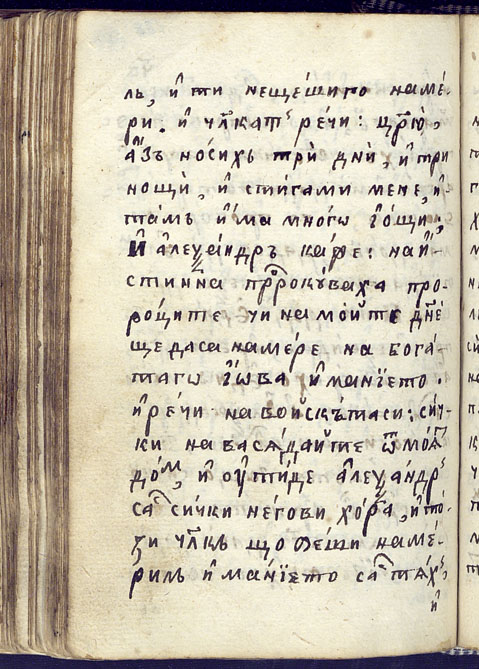 ль, и҆ ти нещешиго намѐ-
ри. и҆ чл҃катъ ре́чи: цр҃ю̀,
а҆́зъ но́сихь трѝ днѝ, и҆ три
нощѝ, и҆ стигами мене, и҆
тамь и҆́ма многѡ і҆ѡ́щи;
И҆ а҆леѯа́ндръ ка́же: най-
стинна прⷪ҇рокꙋ́ваха про-
ро́ците чи на мо́йте дн҃ѐ
ще даса наме́ре на бога-
тагѡ і҆́ѡва и҆манїето.
и҆ ре́чи на войскътаси: сѝч-
ки на васѧ́дайте ѿ моѧ̀
до́м, и҆ ѹ҆ти́де а҆леѯа́ндръ
сас сѝчки не́гови хо́ра, и҆ то́-
зи чл҃кь що беши намѐ-
риль и҆манїето сас тѧ́хъ,
и҆